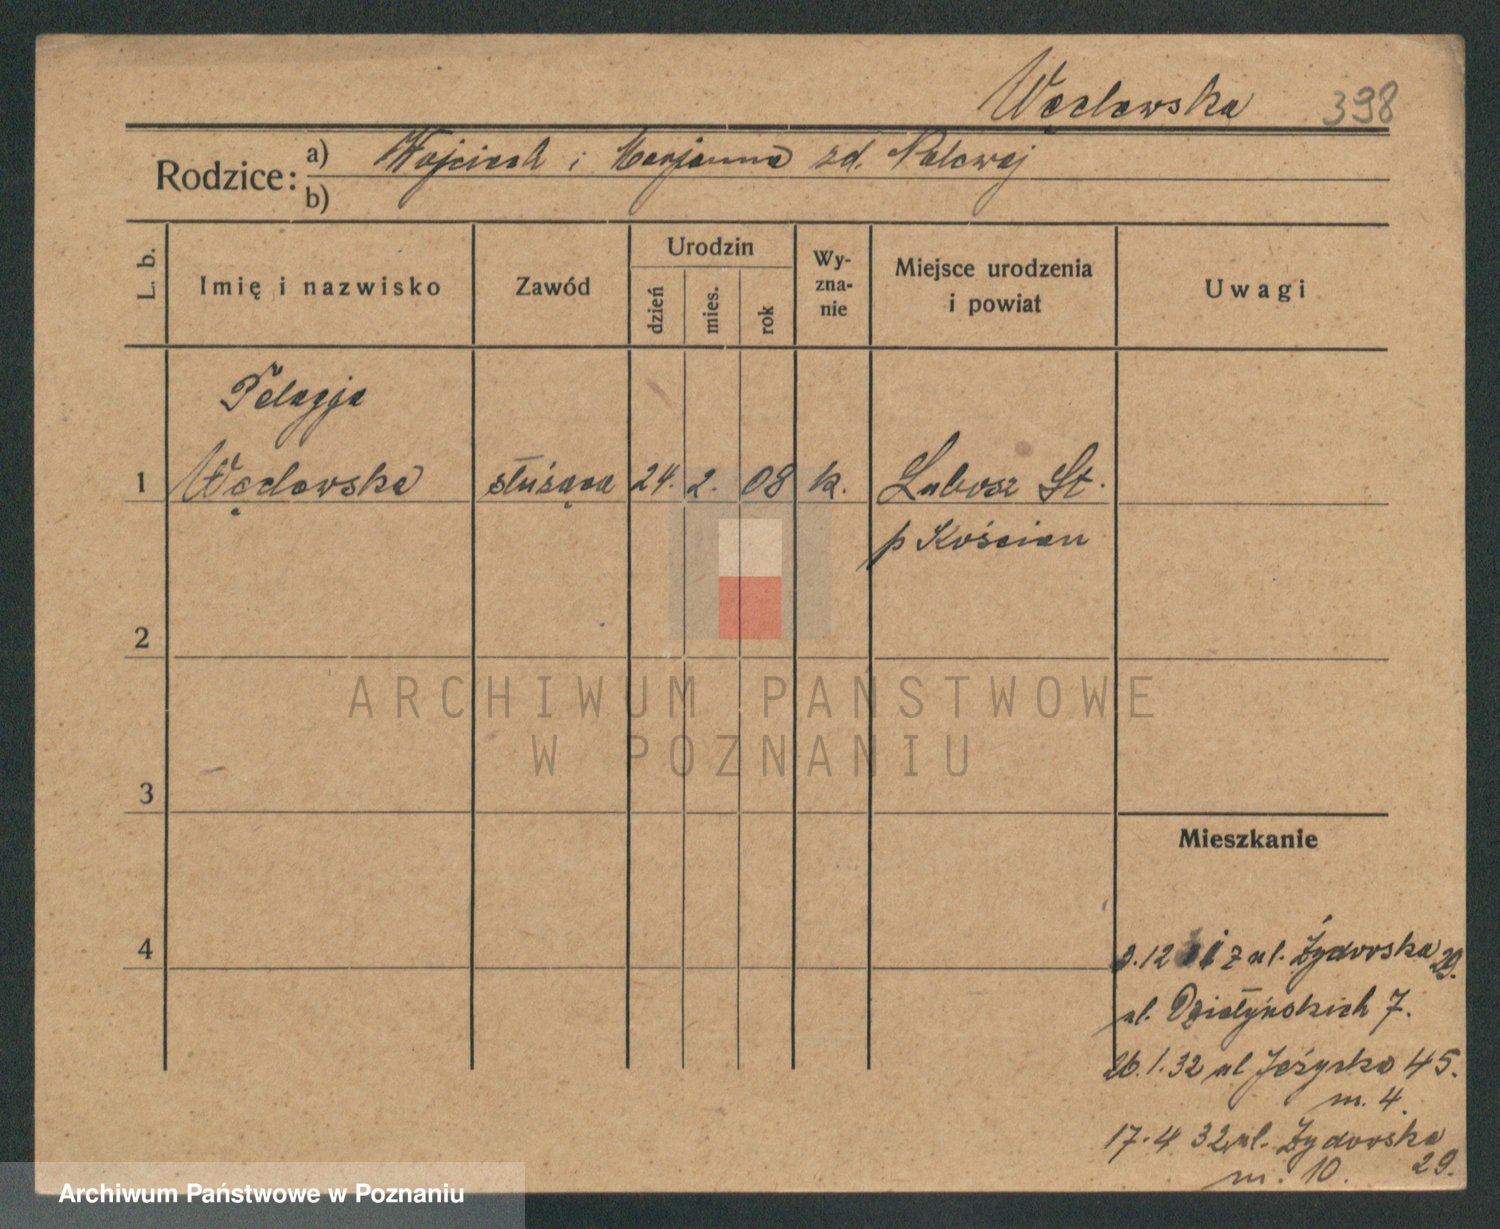 Węclewska 398
Rodzice: a) Wojciech i Marjanna zd. Nalewaj
b)
L. b.
Imię i nazwisko
Zawód
Urodzin
dzień
mies.
rok
Wy-
zna-
nie
Miejsce urodzenia
i powiat
Uwagi
Pelagja
1 Węclewska służąca 24. 2. 08 k. Lubosz St.
p Kościan
2
ARCHIWUM PAŃSTWOWE
W POZNANIU
3
Mieszkanie
4
3.12 31 z ul. Żydowska 29.
ul. Działyńskich 7.
26.1.32 ul Jeżycka 45.
m. 4.
17.4 32 ul. Żydowska
m. 10. 29.
Archiwum Państwowe w Poznaniu